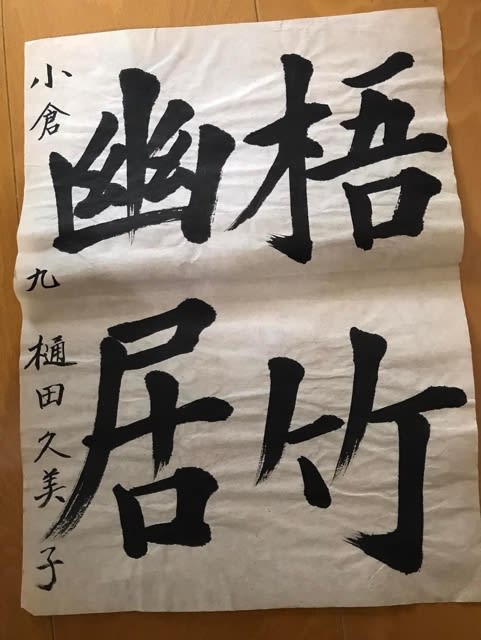 梧竹
幽居
小倉 九 樋田久美子